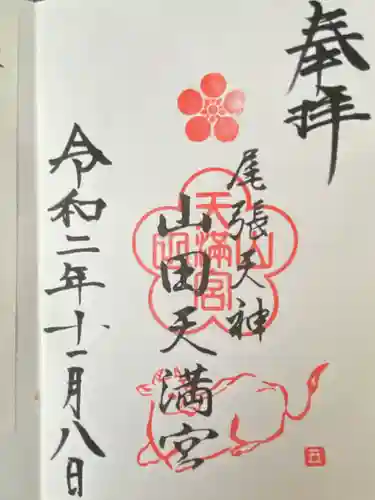 奉拝
尾張天神
山田天満宮
令和二年十一月八日
天満宮
山
田